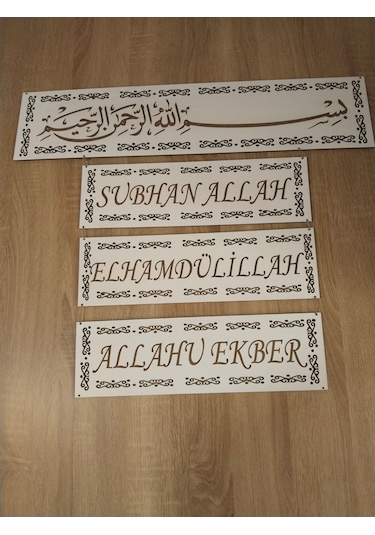 بسم الله الرحمن الرحيم
SUBHAN ALLAH
ELHAMDÜLİLLAH
ALLAHU EKBER